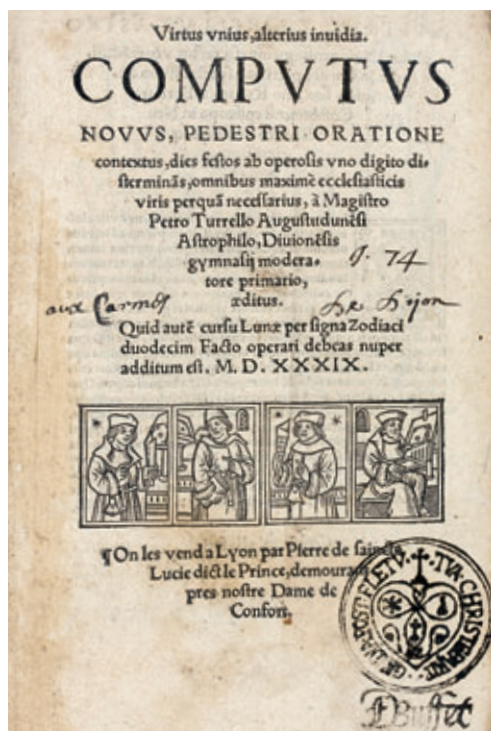 Virtus vnius, alterius inuidia.
COMPVTVS
NOVVS, PEDESTRI ORATIONE
contextus, dies festos ab operosis vno digito di-
sterminãs, omnibus maximè ecclesiasticis
viris perquã necessarius, à Magistro
Petro Turrello Augustudunẽsi
Astrophilo, Diuionẽsis
gymnasij modera-
tore primario,
æditus.
J. 74
aux Carmes
De Dijon
Quid autẽ cursu Lunæ per signa Zodiaci
duodecim Facto operari debeas nuper
additum est. M. D. XXXIX.
¶On les vend a Lyon par Pierre de saincte
Lucie dict le Prince, demourant
pres nostre Dame de
Confort.
TVA CHRISTE
POST FLETV
Buffet